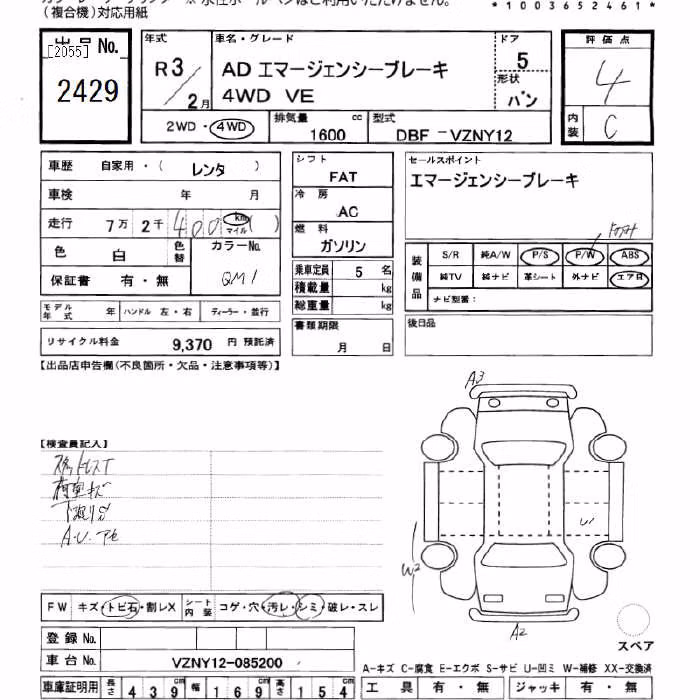 (複合機)対応用紙
*1003652461*
出品 No.
[2055]
2429
年式
R3/2月
車名・グレード
AD エマージェンシーブレーキ
4WD VE
ドア
5
形状
バン
評価点
4
内装
C
2WD・4WD
排気量
1600 cc
型式
DBF-VZNY12
車歴 自家用・( レンタ )
車検 年 月
走行 7万 2千 400 km マイル ( )
色 白 色替 カラーNo. QM1
保証書 有・無
モデル年式 年 ハンドル 左・右 ディーラー・並行
リサイクル料金 9,370 円 預託済
シフト
FAT
冷房
AC
燃料
ガソリン
乗車定員 5 名
積載量 kg
総重量 kg
書類期限
月 日
セールスポイント
エマージェンシーブレーキ
装備品
S/R 純A/W P/S P/W ABS
純TV 純ナビ 革シート 外ナビ エアB
ナビ型番:
後日品
【出品店申告欄(不良箇所・欠品・注意事項等)】
【検査員記入】
荷室キズ
下廻りサビ
A3
U1
W2
A2
スペア
FW キズ・トビ石・割レX シート内装 コゲ・穴・汚レ・シミ・破レ・スレ
登録 No.
車台 No. VZNY12-085200
車庫証明用 長さ 439cm 幅 169cm 高さ 154cm
A-キズ C-腐食 E-エクボ S-サビ U-凹ミ W-補修 XX-交換済
工具 有・無 ジャッキ 有・無